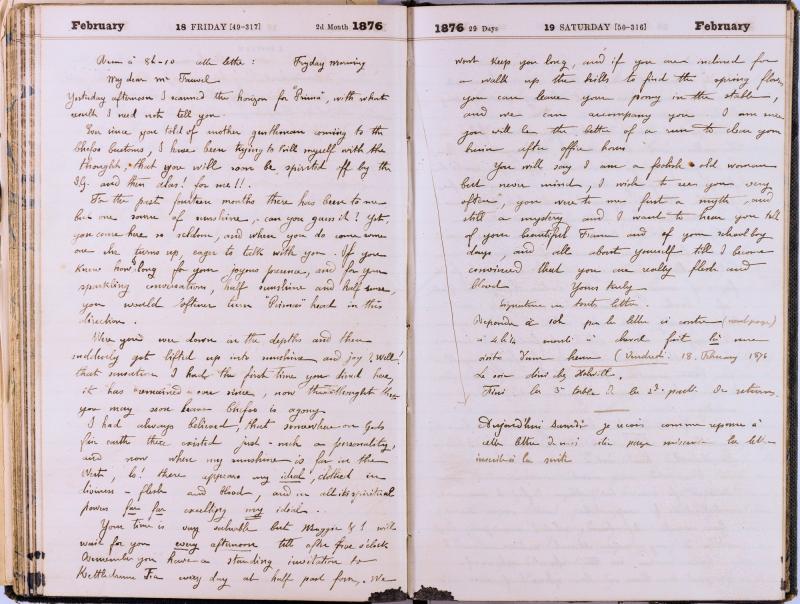 February 18 FRIDAY [49-317] 2d Month 1876
à 8h-10 cette lettre : Fryday morning
My dear Mr
Yesterday afternoon I scanned the horizon for "Prima", with what
result I need not tell you
Ever since you told of another gentleman coming to the
Chefoo Customs, I have been trying to kill myself with the
thought, that you will soon be spirited off by the
I.G. and then alas! for me!!.
For the past fourteen months there has been to me
but one source of sunshine, can you guess it? Yet,
you come here so seldom, and when you do come some
one else turns up, eager to talk with you. If you
knew how I long for your joyous presence, and for your
sparkling conversation, half sunshine and half
you would oftener turn "Prima's" head in this
direction.
Were you ever down in the depths and then
suddenly got lifted up into sunshine and joy? Well!
that sensation I had the first time you dined here,
it has remained ever since, now the thought that
you may soon leave Chefoo is agony.
I had always believed, that somewhere on God's
fair earth there existed just such a personality,
and now when my sunshine is far in the
West, lo! there appears my ideal, clothed in
flesh and blood, and in all its spiritual
powers far far excelling my ideal.
Your time is very valuable but Maggie & I will
wait for you every afternoon till after five o'clock
Remember you have a standing invitation to
Kettledrum Tea every day at half past four. We
1876 29 Days 19 SATURDAY [50-316] February
wont keep you long, and if you are inclined for
a walk up the hills to find the spring flowers
you can leave your pony in the stable,
and we can accompany you. I am sure
you will be the better of a run to clear your
brain after office hours.
You will say I am a foolish old woman
but never mind, I wish to see you very
often, you were to me first a myth, and
still a mystery and I want to hear you tell
of your beautiful France and of your schoolboy
days, and all about yourself till I become
convinced that you are really flesh and
blood. Yours truly
Signature en toute lettre.
Répondu à 10h par la lettre ci contre (next page)
à 4h¼ à cheval fait une
visite d'une heure (Vendredi 18. February 1876
Le soir diné chez
Fini la 3e table de la 2de partie de returns.
Aujourdhui Samedi je reçois comme réponse à
cette lettre de moi page suivante la lettre
inscrite à la suite